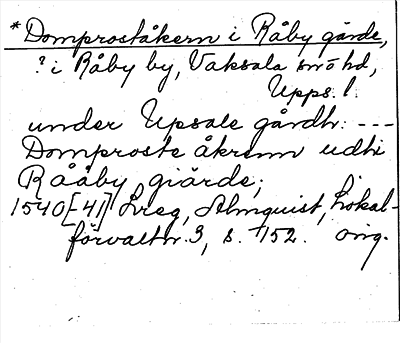 *Domproståkern i Råby gärde,
? i Råby by, Vaksala sn ö hd,
Upps. l.
under Upsale gårdh: ---
Domproste åkrenn udhi
Rååby giärde;
1540[-41] Lreg, Almquist, Lokal-
förvaltn. 3, s. 152. orig.